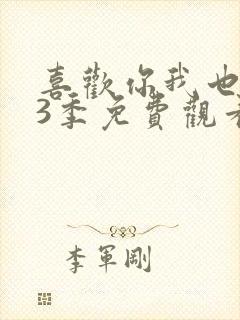 喜歡你我也
3季免費觀看
李軍剛